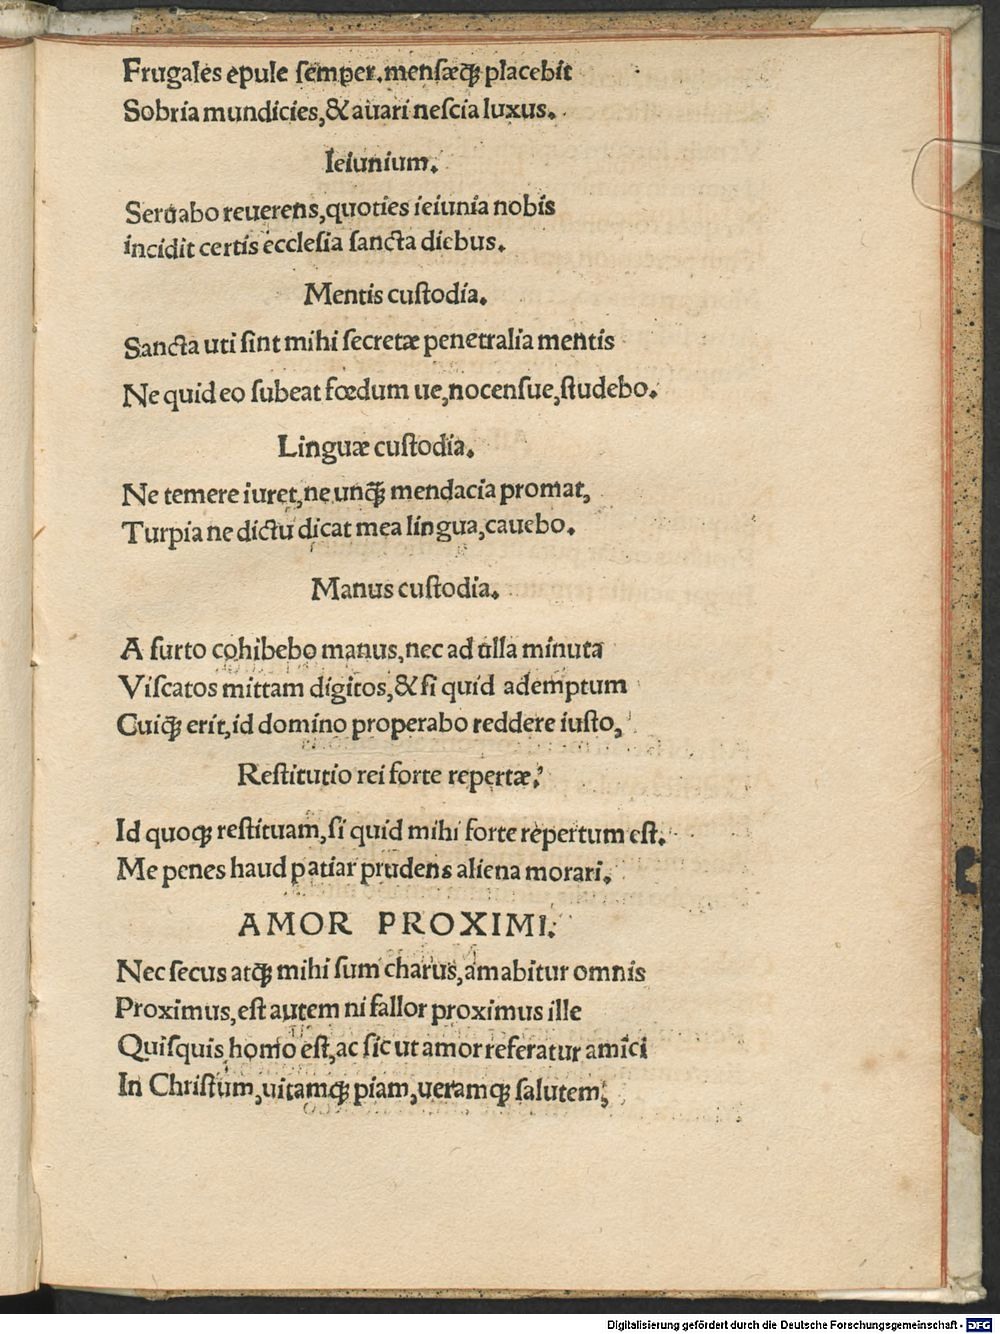 Frugales epule semper, mensæq̃ placebit
Sobria mundicies, & auari nescia luxus.
Ieiunium.
Seruabo reuerens, quoties ieiunia nobis
incidit certis ecclesia sancta diebus.
Mentis custodia.
Sancta uti sint mihi secretæ penetralia mentis
Ne quid eo subeat fœdum ue, nocensue, studebo.
Linguæ custodia.
Ne temere iuret, ne unq̃ mendacia promat,
Turpia ne dictu dicat mea lingua, cauebo.
Manus custodia.
A furto cohibebo manus, nec ad ulla minuta
Viscatos mittam digitos, & si quid ademptum
Cuiq̃ erit, id domino properabo reddere iusto,
Restitutio rei forte repertæ.
Id quoq̃ restituam, si quid mihi forte repertum est.
Me penes haud patiar prudens aliena morari.
AMOR PROXIMI.
Nec secus atq̃ mihi sum charus, amabitur omnis
Proximus, est autem ni fallor proximus ille
Quisquis homo est, ac sic ut amor referatur amici
In Christum, uitamq̃ piam, ueramq̃ salutem,
Digitalisierung gefördert durch die Deutsche Forschungsgemeinschaft - DFG